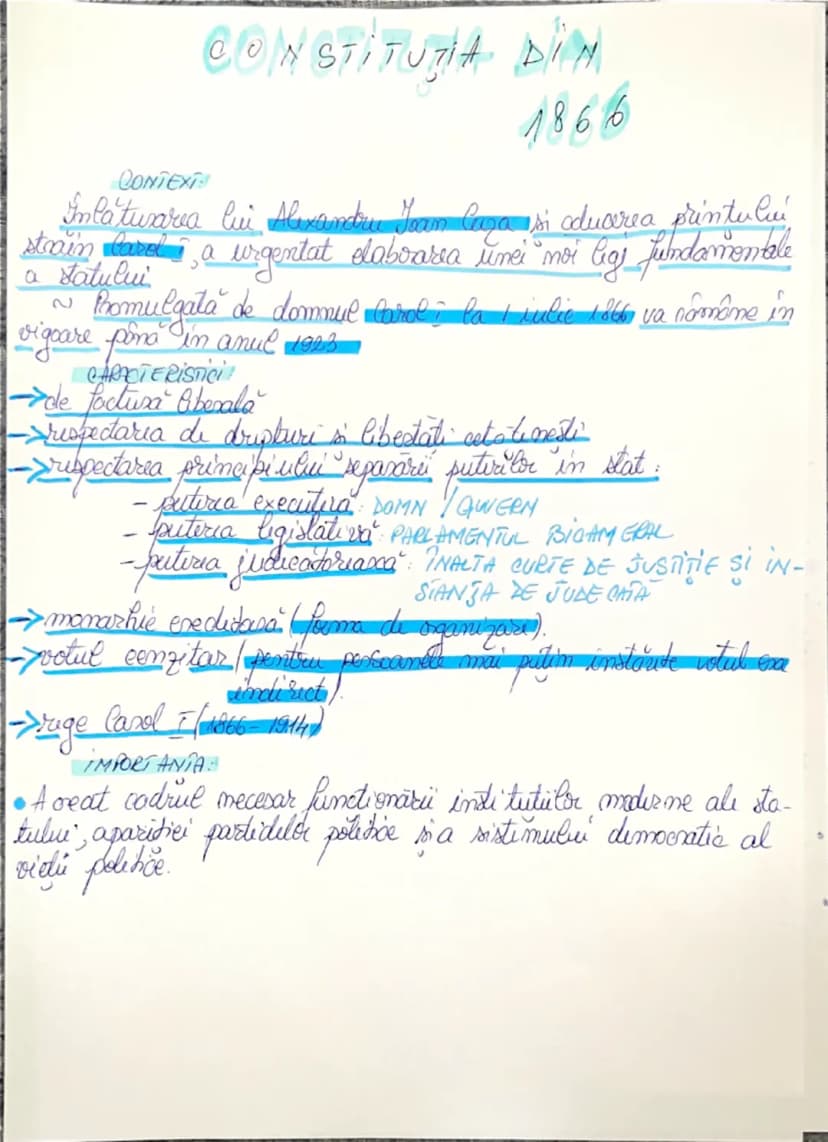 CONSTITUȚIA DIN
1866
CONTEXT:
Înlăturarea lui Alexandru Ioan Cuza și aducerea prințului
străin Carol I, a urgentat elaborarea unei noi legi fundamentale
a statului.
~ Promulgată de domnul Carol I la 1 iulie 1866 va rămâne în
vigoare până în anul 1923
CARACTERISTICI:
→de factură liberală
→respectarea de drepturi și libertăți cetățenești
→respectarea principiului separării puterilor în stat:
- puterea executivă: DOMN / GUVERN
- puterea legislativă: PARLAMENTUL BICAMERAL
- puterea judecătorească: ÎNALTA CURTE DE JUSTIȚIE ȘI IN-
STANȚA DE JUDECATĂ
→monarhie ereditară (forma de organizare).
→votul cenzitar (pentru persoanele mai puțin înstărite votul era
indirect).
→rege Carol I (1866-1914)
IMPORTANȚA:
• A creat cadrul necesar funcționării instituțiilor moderne ale sta-
tului, apariției partidelor politice și a sistemului democratic al
vieții politice.